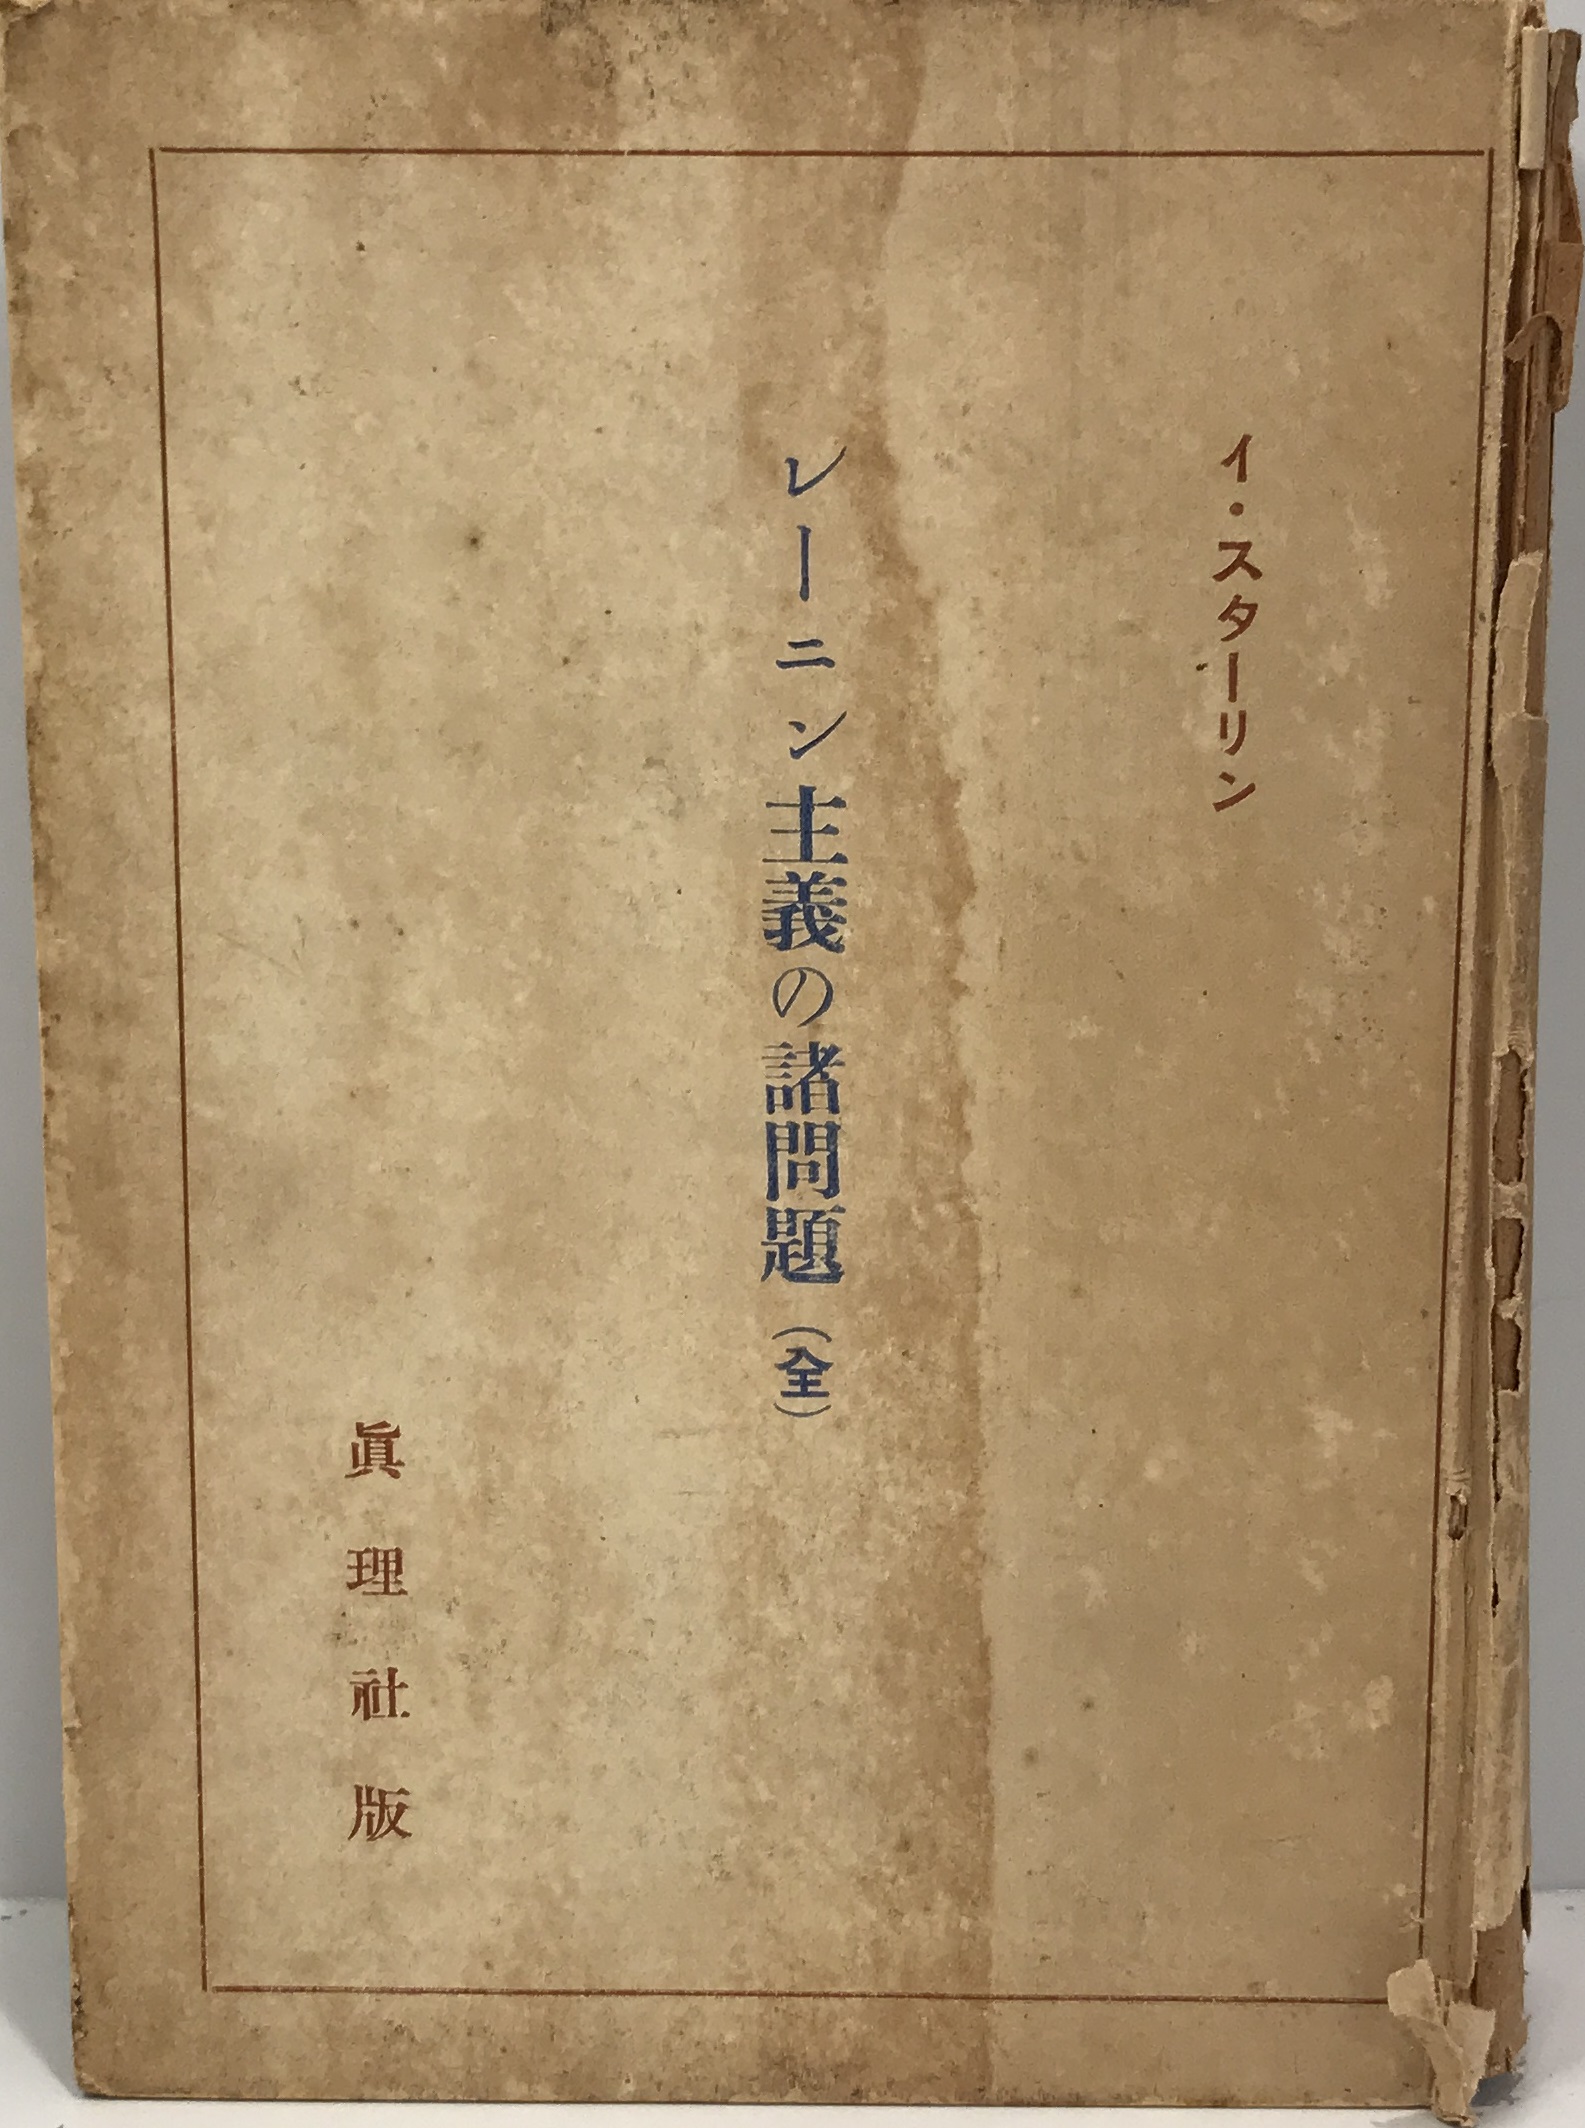 イ・スターリン
レーニン主義の諸問題（全）
眞理社版